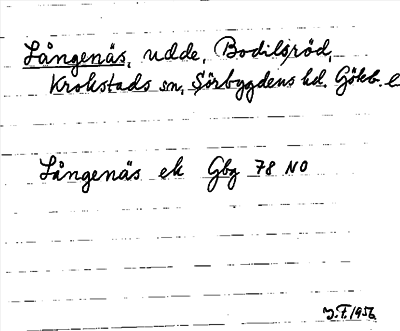 Långenäs, udde, Bodilsröd,
Krokstads sn, Sörbygdens hd. Götb. l
Långenäs ek Gbg 78 NO
J.F. 1956